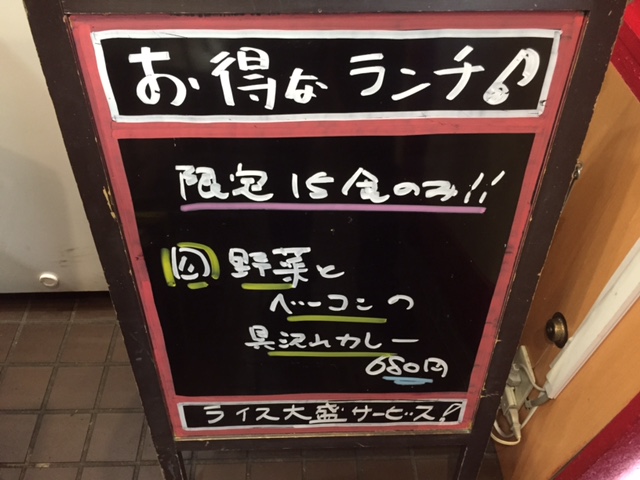 お得なランチ♪
限定15食のみ!!
野菜と
ベーコンの
具沢山カレー
680円
ライス大盛サービス!